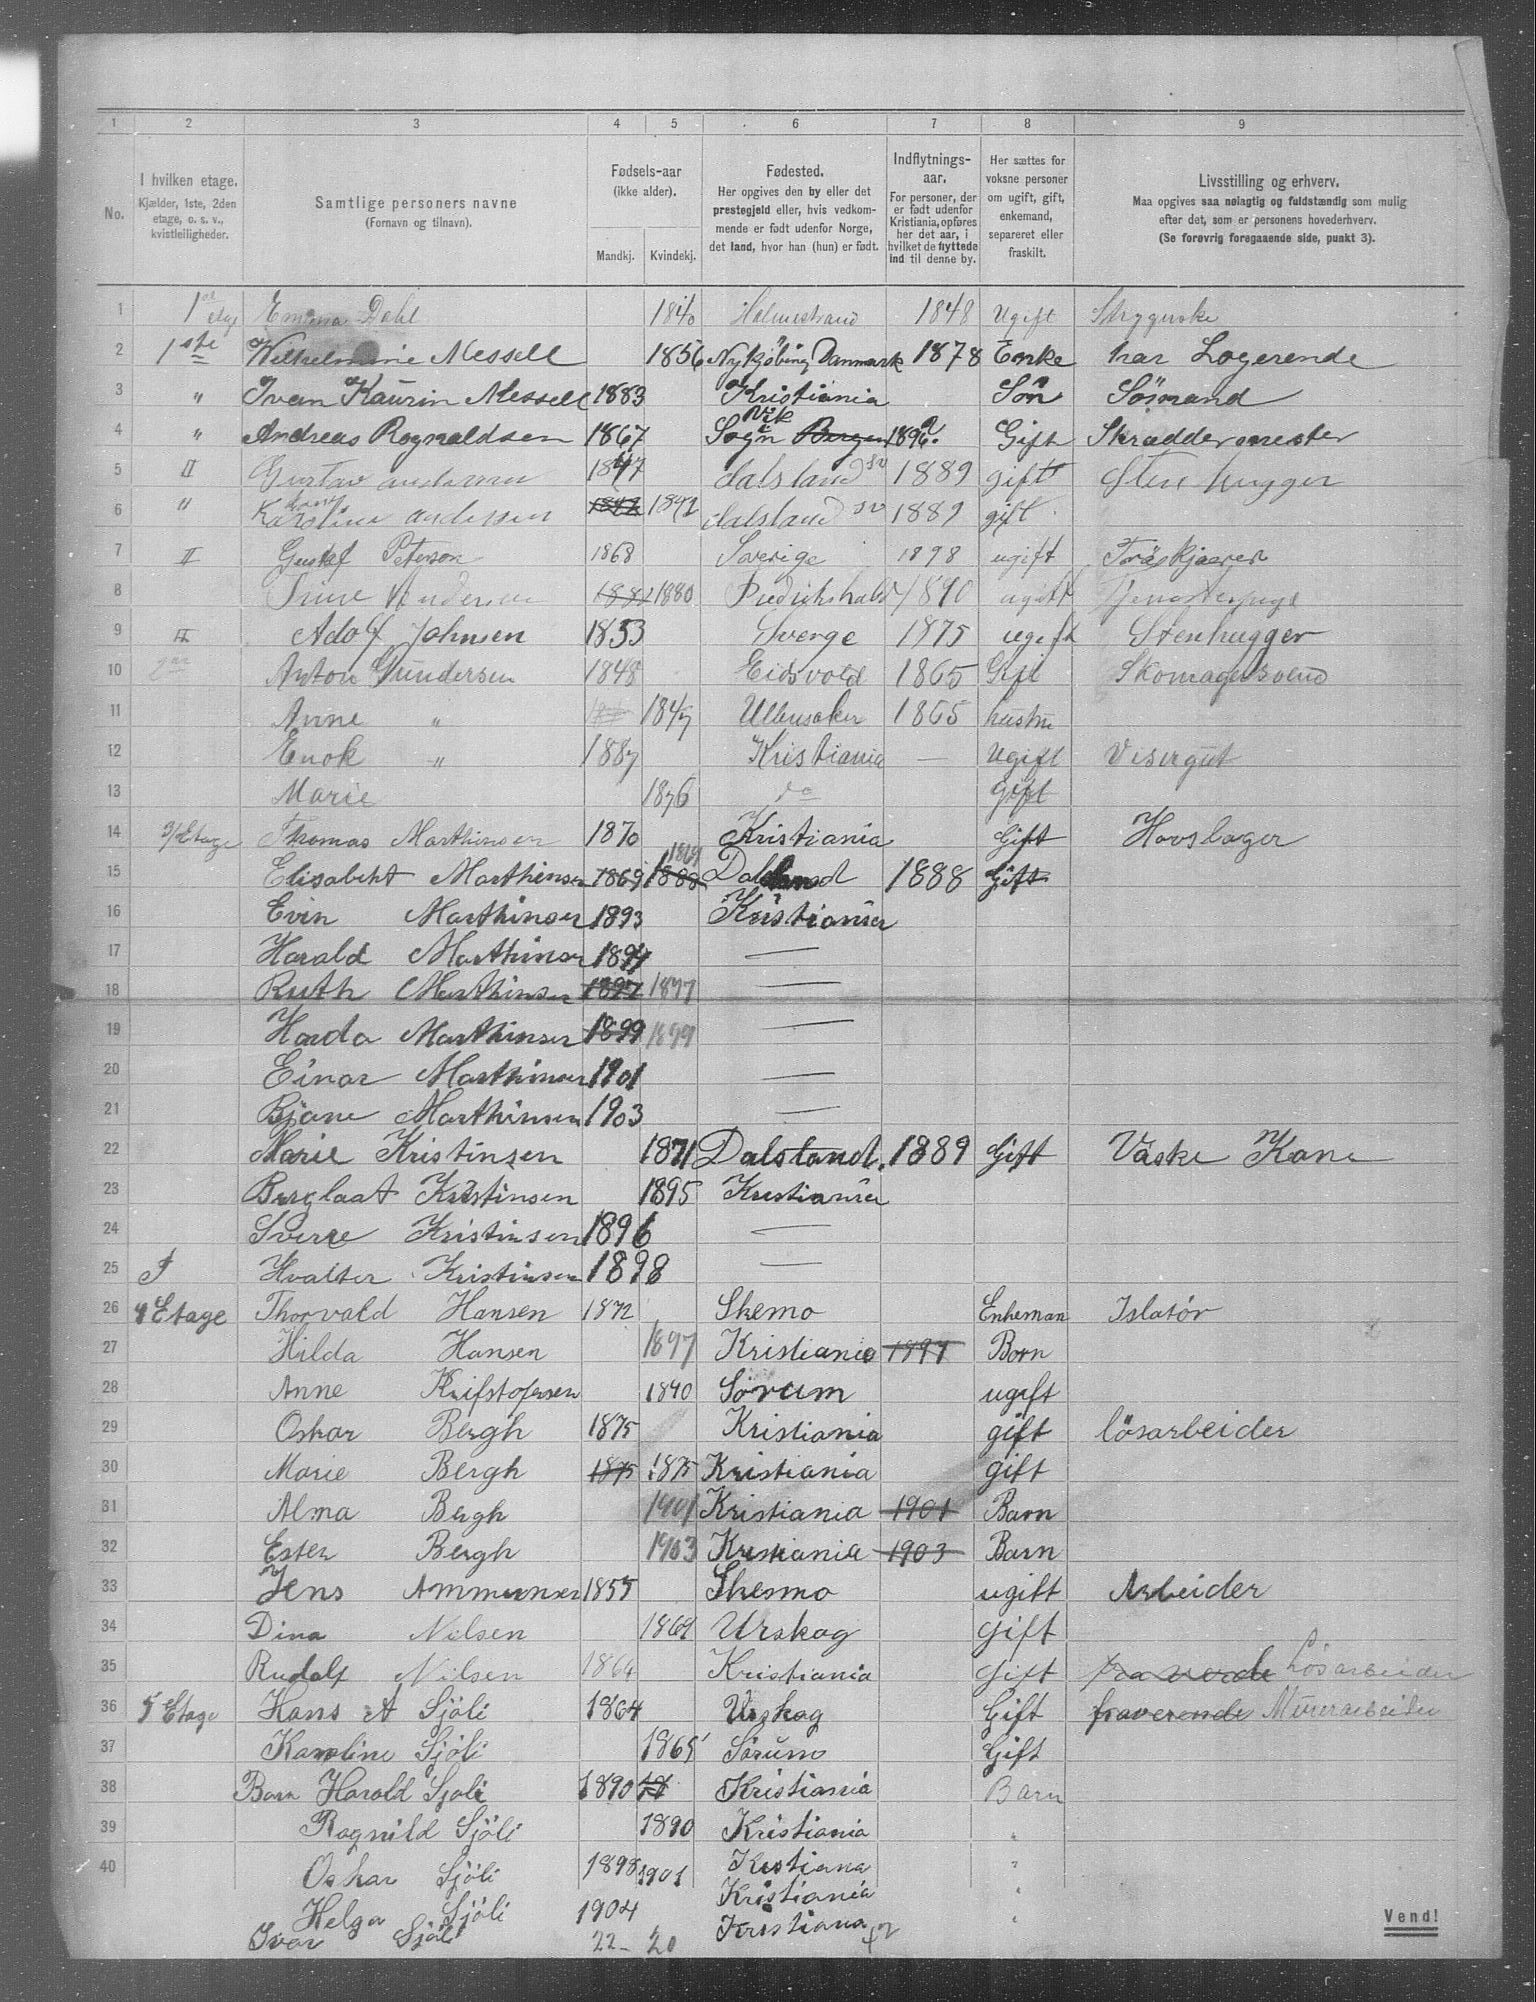 1 2 3 4 5 6 7 8 9
No.
I hvilken etage.
Kjælder, 1ste, 2den
etage, o. s. v.,
kvistleiligheder.
Samtlige personers navne
(Fornavn og tilnavn).
Fødsels-aar
(ikke alder).
Mandkj. Kvindekj.
Fødested.
Her opgives den by eller det
prestegjeld eller, hvis vedkom-
mende er født udenfor Norge,
det land, hvor han (hun) er født.
Indflytnings-
aar.
For personer, der
er født udenfor
Kristiania, opføres
her det aar, i
hvilket de flyttede
ind til denne by.
Her sættes for
voksne personer
om ugift, gift,
enkemand,
separeret eller
fraskilt.
Livsstilling og erhverv.
Maa opgives saa nølagtig og fuldstændig som mulig
efter det, som er personens hovederhverv.
(Se forøvrig foregaaende side, punkt 3).
1 Emma Dahl 1840 Holmestrand 1848 Ugift
2 1ste Wilhelmine Messell 1856 Nykjöbing Danmark 1878 Enke har Logerende
3 " Ivan Kaurin Messell 1883 Kristiania Sön Sömand
4 " Andreas Rognaldsen 1867 Vik Sogn Bergen Gift Skræddermester
5 II Gustav andersen 1847 dalsland sv 1889 gift Stenhugger
6 " Karoline andersen 1842 1842 dalsland sv 1889 gift
7 II Gustaf Peterson 1868 Sverige 1898 ugift Träskjærer
8 Andersen 1880 Fredrikshald 1890 ugift
9 II Adolf Johnsen 1853 Sverge 1875 ugift Stenhugger
10 Anton Gundersen 1848 Eidsvold 1865 Gift Skomagersvend
11 Anne " 1847 Ullensaker 1865 hustru
12 Enok " 1887 Kristiania — Ugift Visergut
13 Marie 1876 do Gift
14 3/Etage Thomas Marthinsen 1870 Kristiania Gift Hovslager
15 Elisabeht Marthinsen 1869 1888 1869 Dalsland 1888 Gift
16 Evin Marthinsen 1893 Kristiania
17 Harald Marthinsen 1894 —
18 Ruth Marthinsen 1897 1897 —
19 Harda Marthinsen 1899 1899 —
20 Einar Marthinsen 1901 —
21 Bjane Marthinsen 1903 —
22 Marie Kristinsen 1871 Dalsland. 1889 Gift Vaske Kone
23 Berglaat Kristinsen 1895 Kristiania
24 Sverre Kristinsen 1896 —
25 Hvalter Kristinsen 1898 —
26 4 Etage Thorvald Hansen 1872 Skemo Enkeman Islatör
27 Hilda Hansen 1897 Kristiania 1897 Born
28 Anne Krifstofersen 1840 Sörum ugift
29 Oskar Bergh 1875 Kristiania gift lösarbeider
30 Marie Bergh 1875 1875 Kristiania gift
31 Alma Bergh 1901 Kristiania 1901 Barn
32 Ester Bergh 1903 Kristiania 1903 Barn
33 Jens Ammunsen 1855 Skesmo ugift Arbeider
34 Dina Nilsen 1869 Urskog Gift
35 Rudolf Nilsen 1864 Kristiania Gift Lösarbeider
36 5 Etage Hans A Sjöli 1864 Urskog Gift fraverende Murerarbeider
37 Karoline Sjöli 1865 Sörum Gift
38 Barn Harold Sjöli 1890 Kristiania Barn
39 Ragnild Sjöli 1890 Kristiania "
40 Oskar Sjöli 1898 1901 Kristiana "
Helga Sjöli 1904 Kristiania "
Ivar Sjöli Kristiana
22- 20 42
Vend!